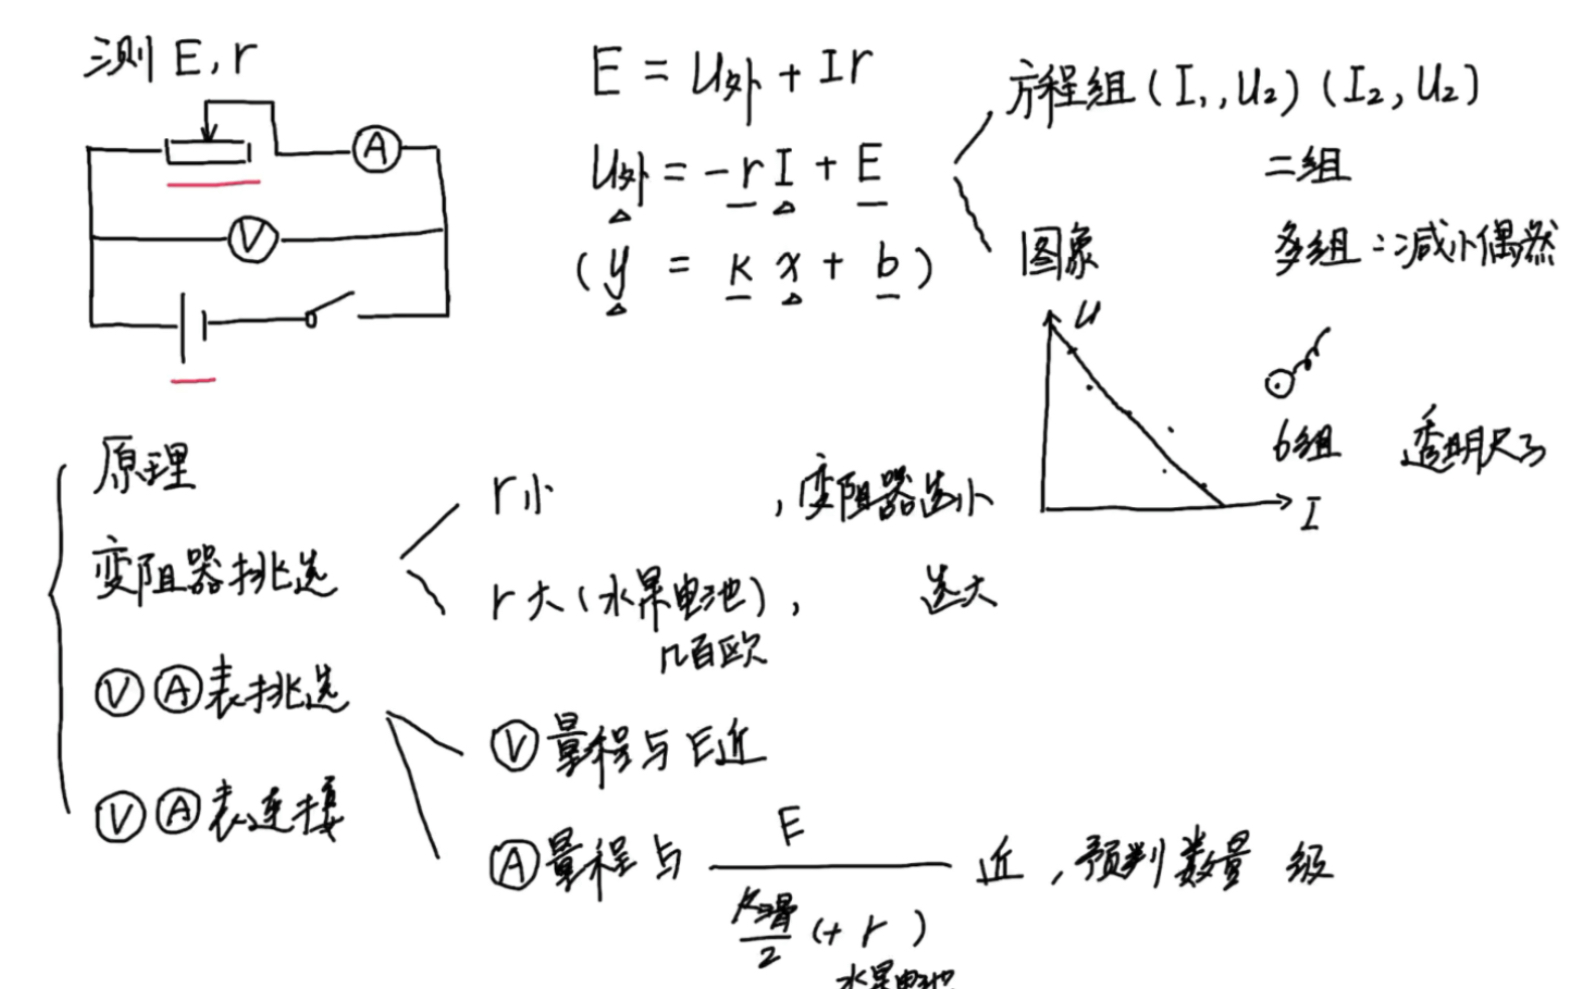 测 E, r
A
V
E = U外 + Ir
U外 = -rI + E
(y = kx + b)
方程组 (I₁, U₂) (I₂, U₂)
二组
图象
多组：减小偶然
U
I
6组 透明尺子
原理
变阻器挑选
r小 ，变阻器选小
r大(水果电池)， 选大
几百欧
Ⓥ Ⓐ 表挑选
Ⓥ 量程与E近
Ⓥ Ⓐ 表连接
Ⓐ 量程与 E 近，预判数量级
R滑/2 (+ r)
水果电池